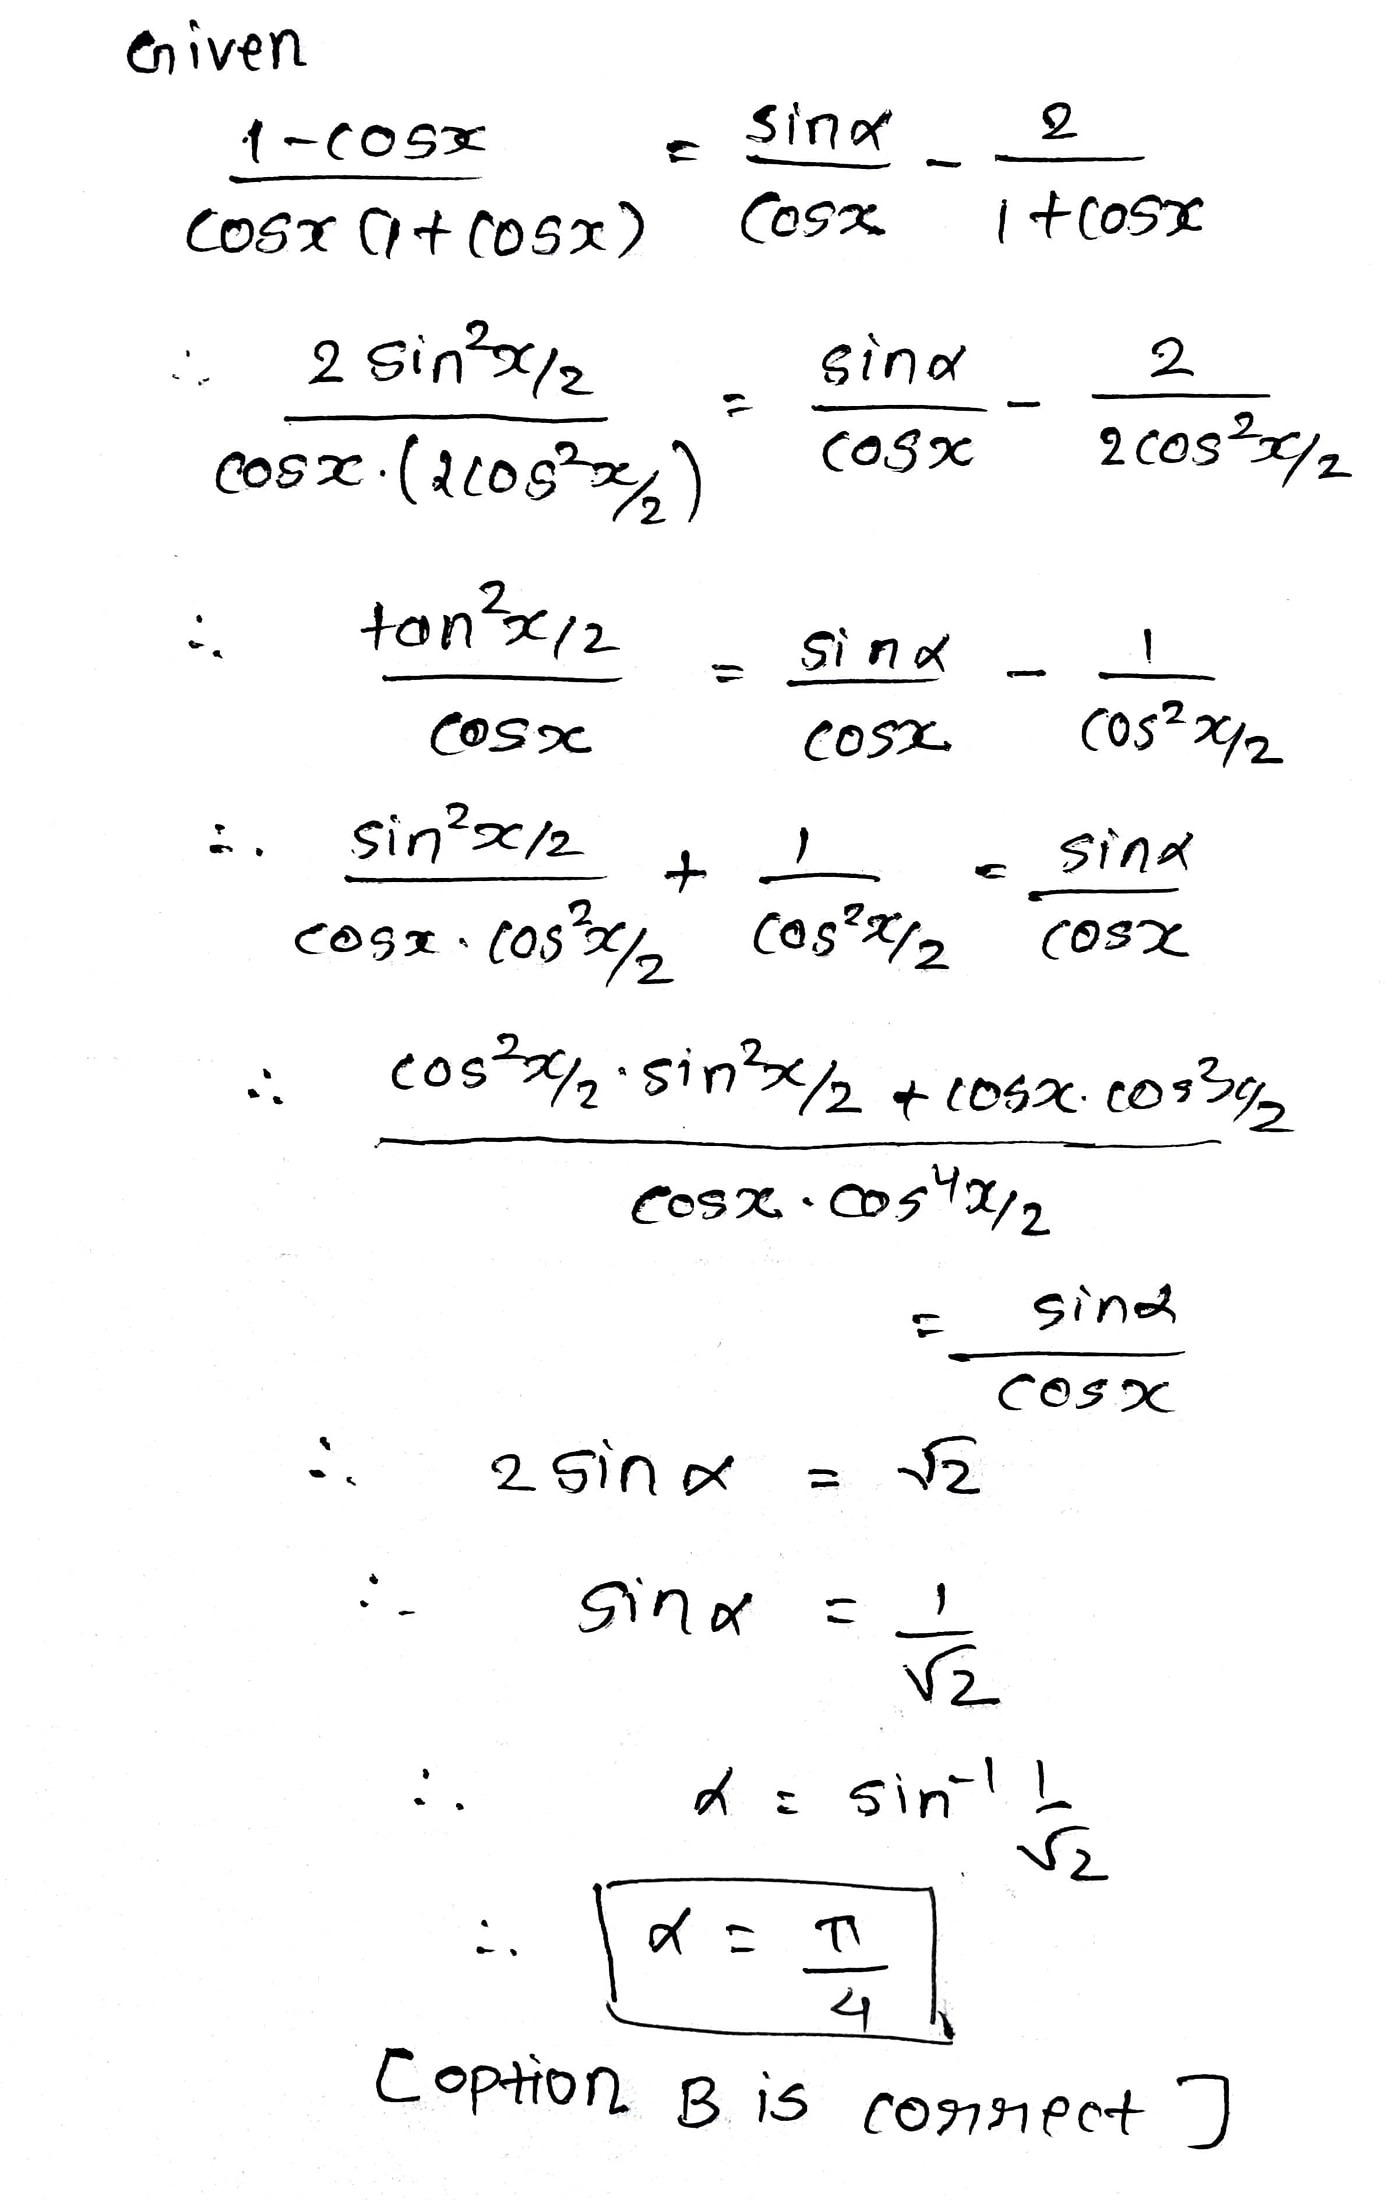 Given
1-cosx / cosx (1+cosx) = sinα / cosx - 2 / 1+cosx
∴ 2 sin²x/2 / cosx.(2cos²x/2) = sinα / cosx - 2 / 2cos²x/2
∴ tan²x/2 / cosx = sinα / cosx - 1 / cos²x/2
∴ sin²x/2 / cosx.cos²x/2 + 1 / cos²x/2 = sinα / cosx
∴ cos²x/2.sin²x/2 + cosx.cos²x/2 / cosx.cos⁴x/2
= sinα / cosx
∴ 2 sinα = √2
∴ sinα = 1 / √2
∴ α = sin⁻¹ 1 / √2
∴ α = π / 4
[option B is correct]